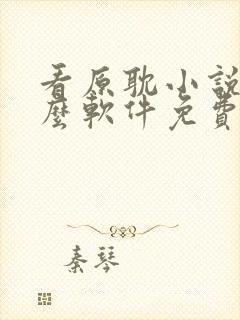 看原耽小說
麼軟件免費
秦琴